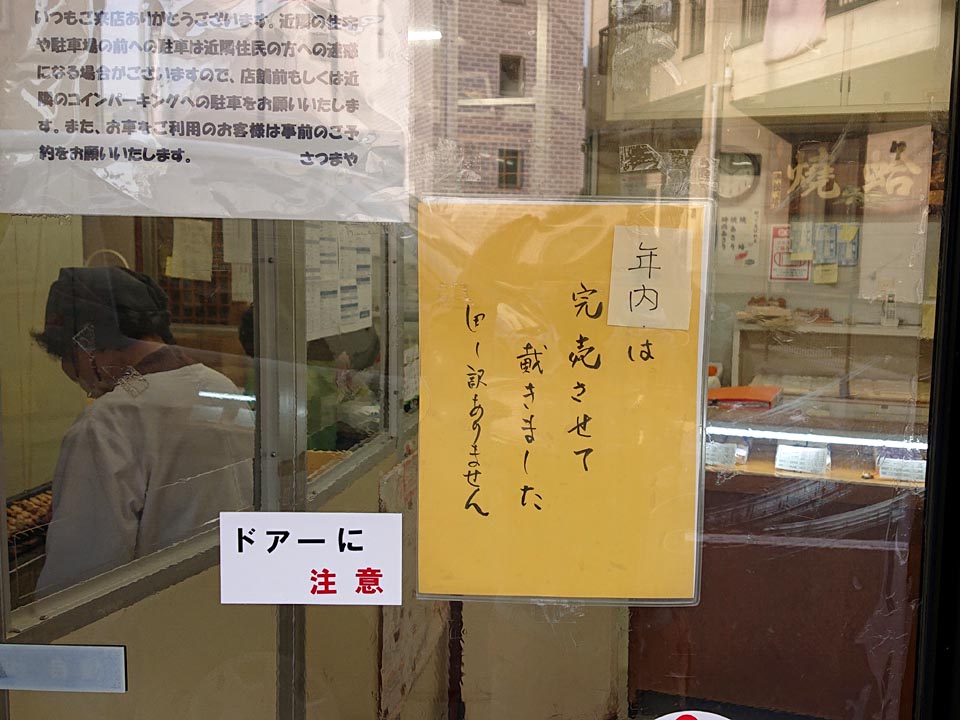 いつもご来店ありがとうございます。近隣の住宅
や駐車場の前への駐車は近隣住民の方への迷惑
になる場合がございますので、店舗前もしくは近
隣のコインパーキングへの駐車をお願いいたしま
す。また、お車をご利用のお客様は事前のご予
約をお願いいたします。
さつまや
焼蛤
年内は
完売させて
戴きました
申し訳ありません
ドアーに
注意